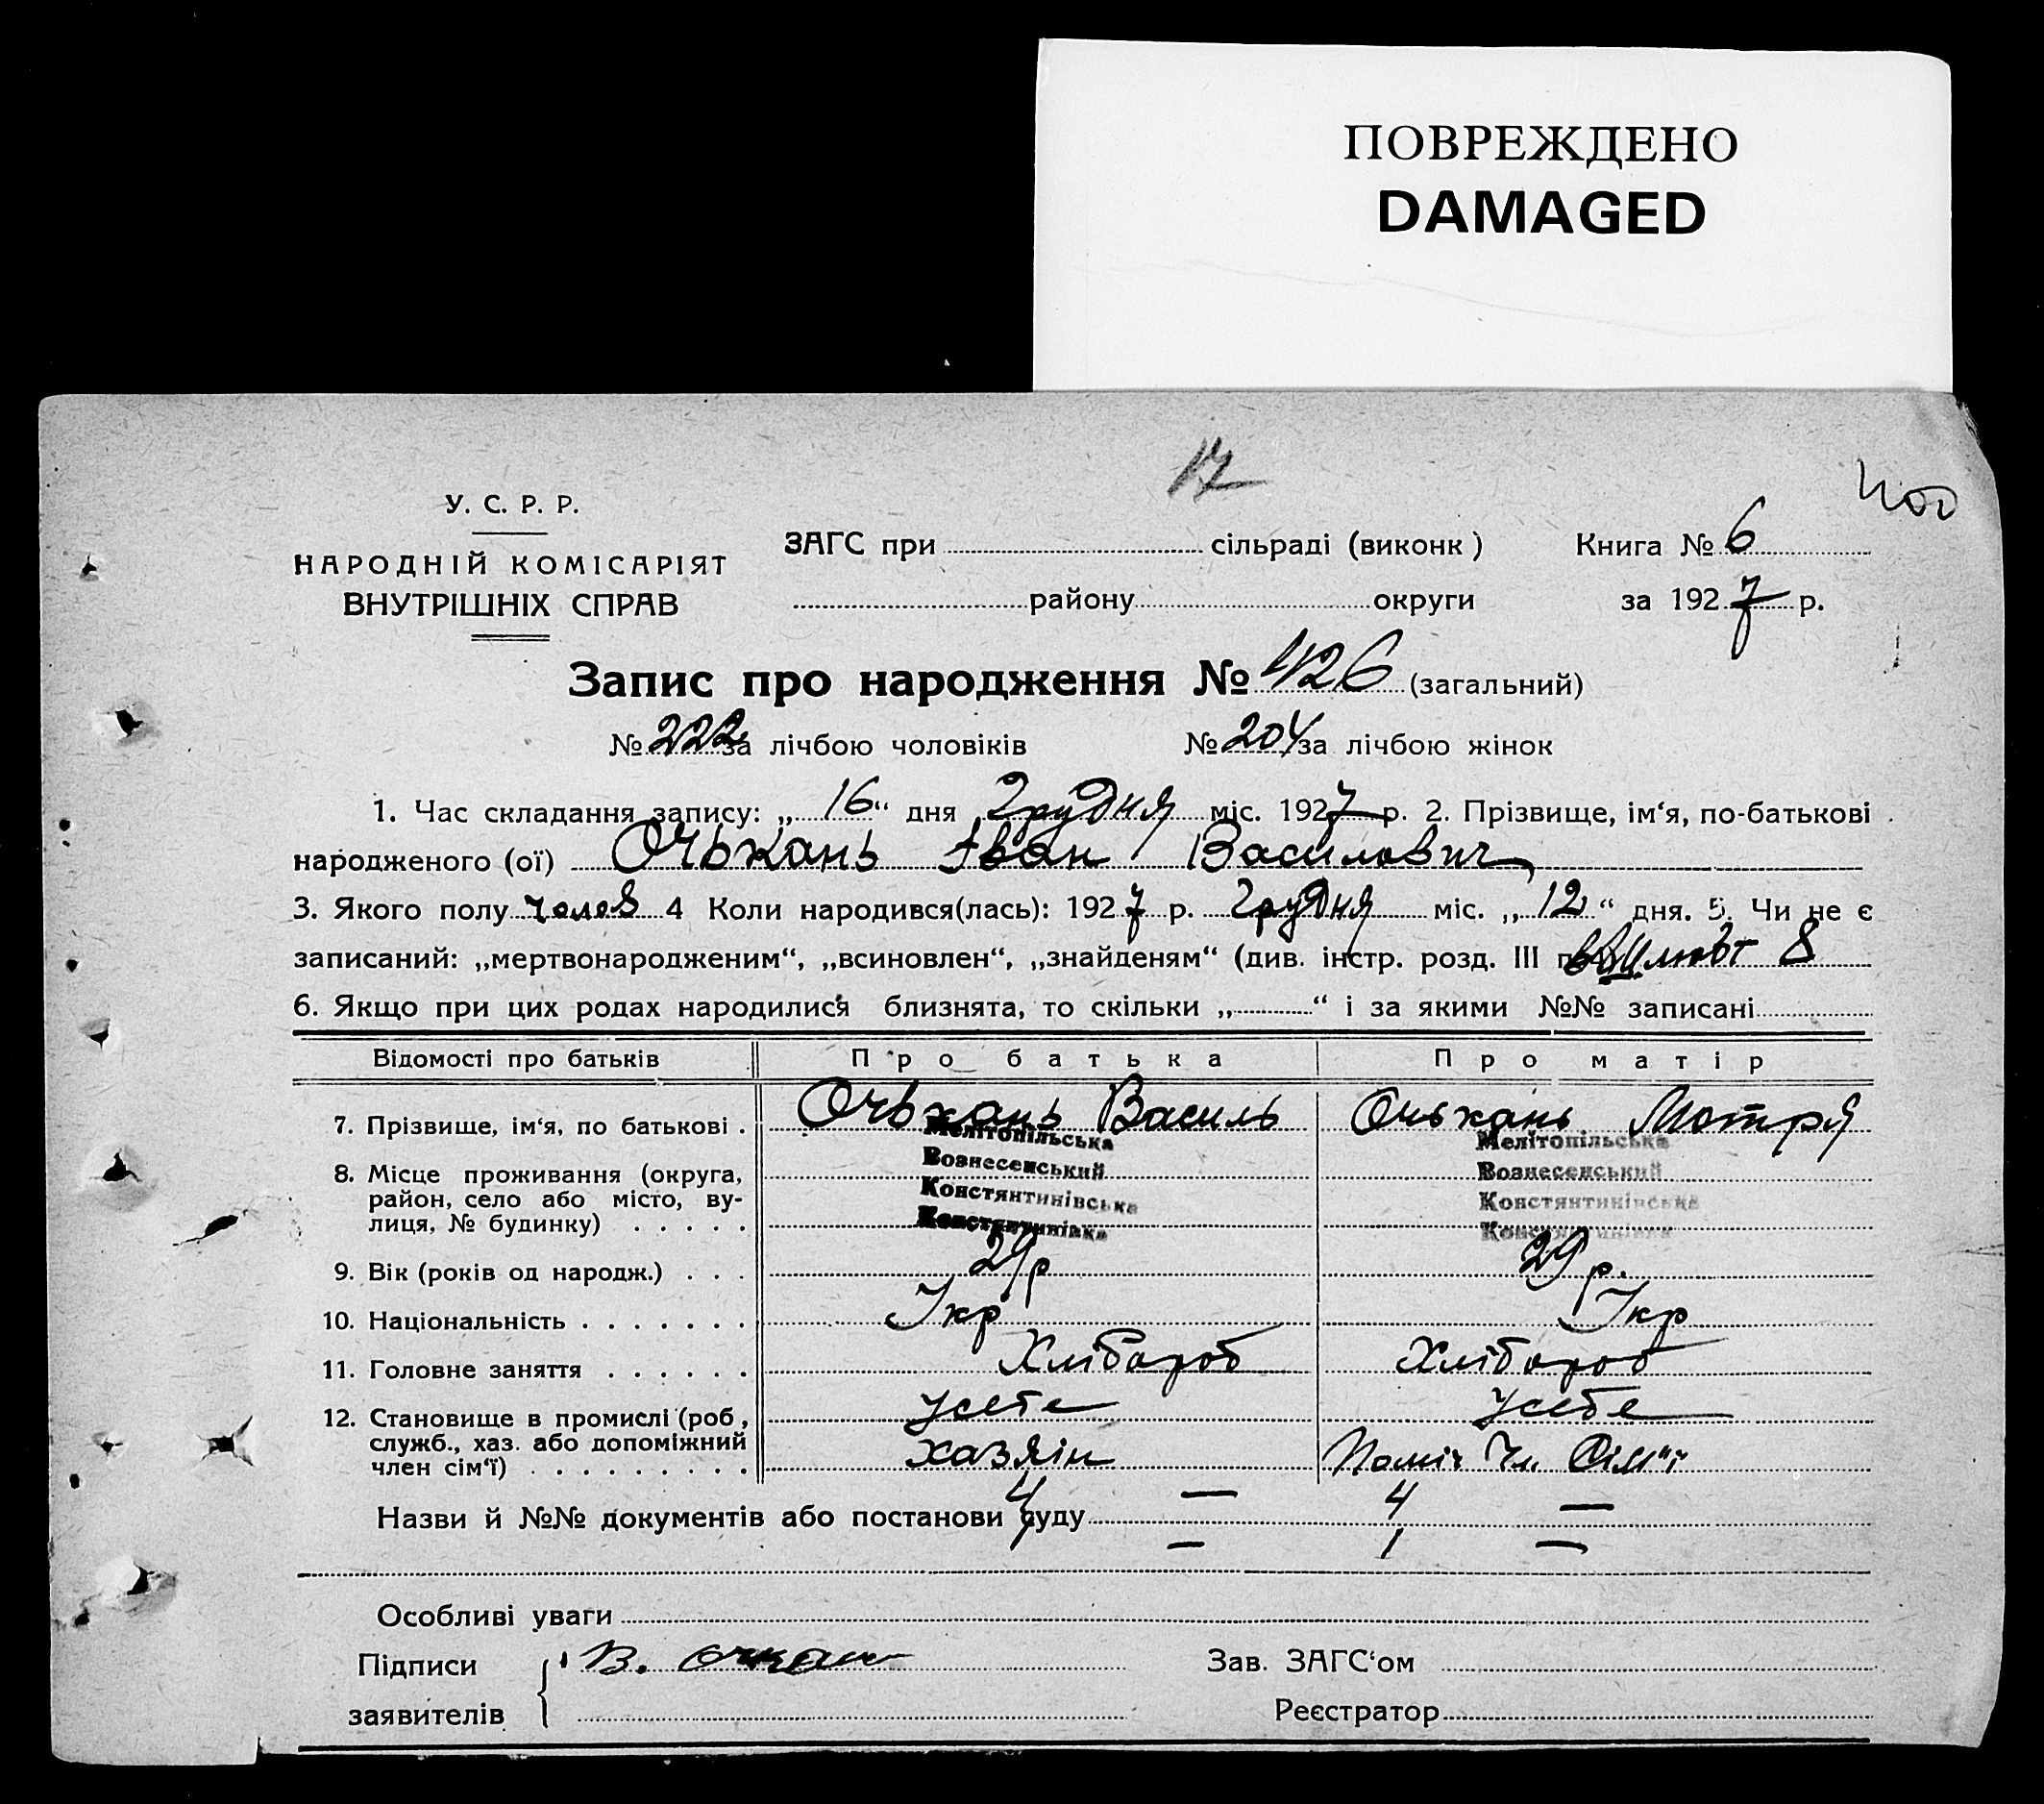 ПОВРЕЖДЕНО
DAMAGED
17
400
У. С. Р. Р.
НАРОДНІЙ КОМІСАРІЯТ
ВНУТРІШНІХ СПРАВ
ЗАГС при сільраді (виконк)
району округи
Книга № 6
за 1927 р.
Запис про народження № 426 (загальний)
№ 222 за лічбою чоловіків № 204 за лічбою жінок
1. Час складання запису: „16“ дня Грудня міс. 1927 р. 2. Прізвище, ім‘я, по-батькові
народженого (ої) Очькань Іван Василович
3. Якого полу чолов 4 Коли народився(лась): 1927 р. Грудня міс. „12“ дня. 5. Чи не є
записаний: „мертвонародженим“, „всиновлен“, „знайденям“ (див. інстр. розд. III 8
6. Якщо при цих родах народилися близнята, то скільки „ “ і за якими №№ записані
Відомості про батьків Про батька Про матір
7. Прізвище, ім‘я, по батькові . Очькань Василь Очькань Мотря
8. Місце проживання (округа, район, село або місто, вулиця, № будинку) . . . . .
Мелітопільська Мелітопільська
Вознесенський Вознесенський
Констянтинівська Констянтинівська
Констянтинівка Констянтинівка
9. Вік (років од народж.) . . . 29 р 29 р.
10. Національність . . . . . . . Укр Укр
11. Головне заняття . . . . . . Хлібороб Хлібороб
12. Становище в промислі (роб, служб., хаз. або допоміжний член сім‘ї) . . . . . . . . .
усебе усебе
хазяін Поміч Чл. Сім"ї
Назви й №№ документів або постанови суду 4 — 4 —
— 1 —
Особливі уваги
Підписи В. Очкань Зав. ЗАГС‘ом
заявителів Реєстратор